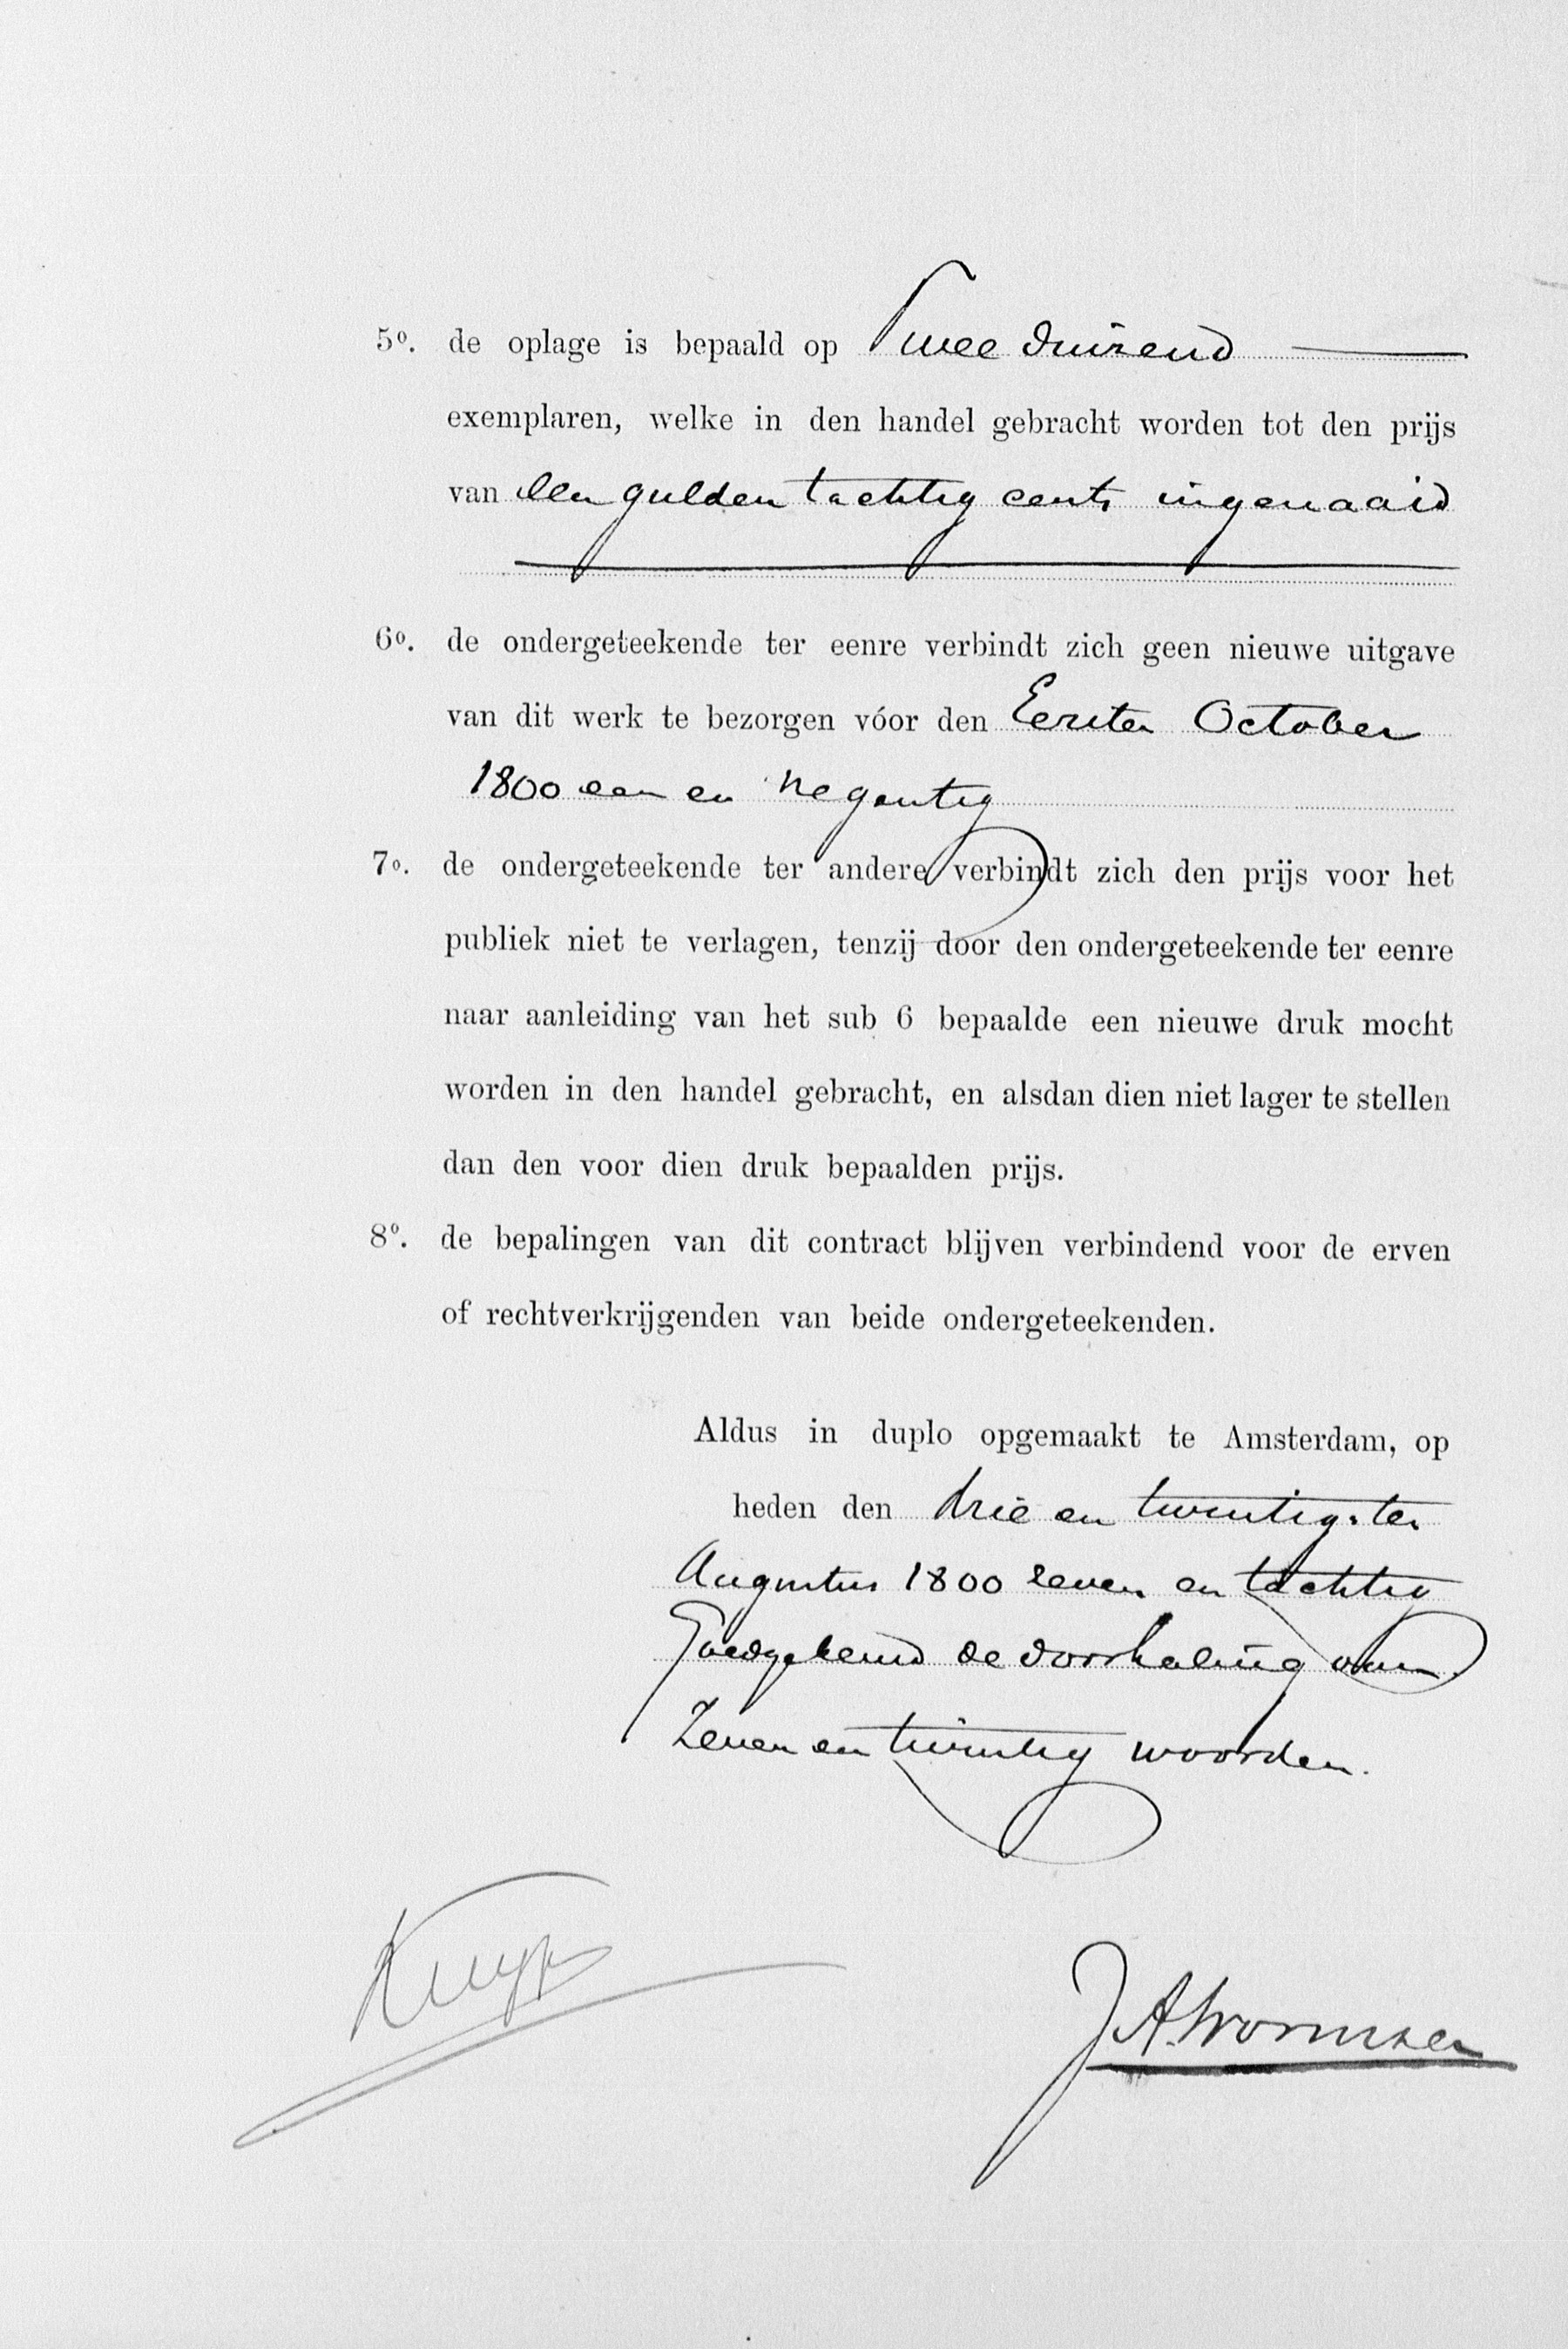 5º. de oplage is bepaald op Twee duizend
exemplaren, welke in den handel gebracht worden tot den prijs
van een gulden tachtig cents ingenaaid
6º. de ondergeteekende ter eenre verbindt zich geen nieuwe uitgave
van dit werk te bezorgen vóor den Eersten October
1800 een en negentig
7º. de ondergeteekende ter andere verbindt zich den prijs voor het
publiek niet te verlagen, tenzij door den ondergeteekende ter eenre
naar aanleiding van het sub 6 bepaalde een nieuwe druk mocht
worden in den handel gebracht, en alsdan dien niet lager te stellen
dan den voor dien druk bepaalden prijs.
8º. de bepalingen van dit contract blijven verbindend voor de erven
of rechtverkrijgenden van beide ondergeteekenden.
Aldus in duplo opgemaakt te Amsterdam, op
heden den drie en twintigsten
Augustus 1800 zeven en tachtig
Goedgekeurd de doorhaling van
Zeven en twintig woorden.
Kuyper
J.A. Wormser